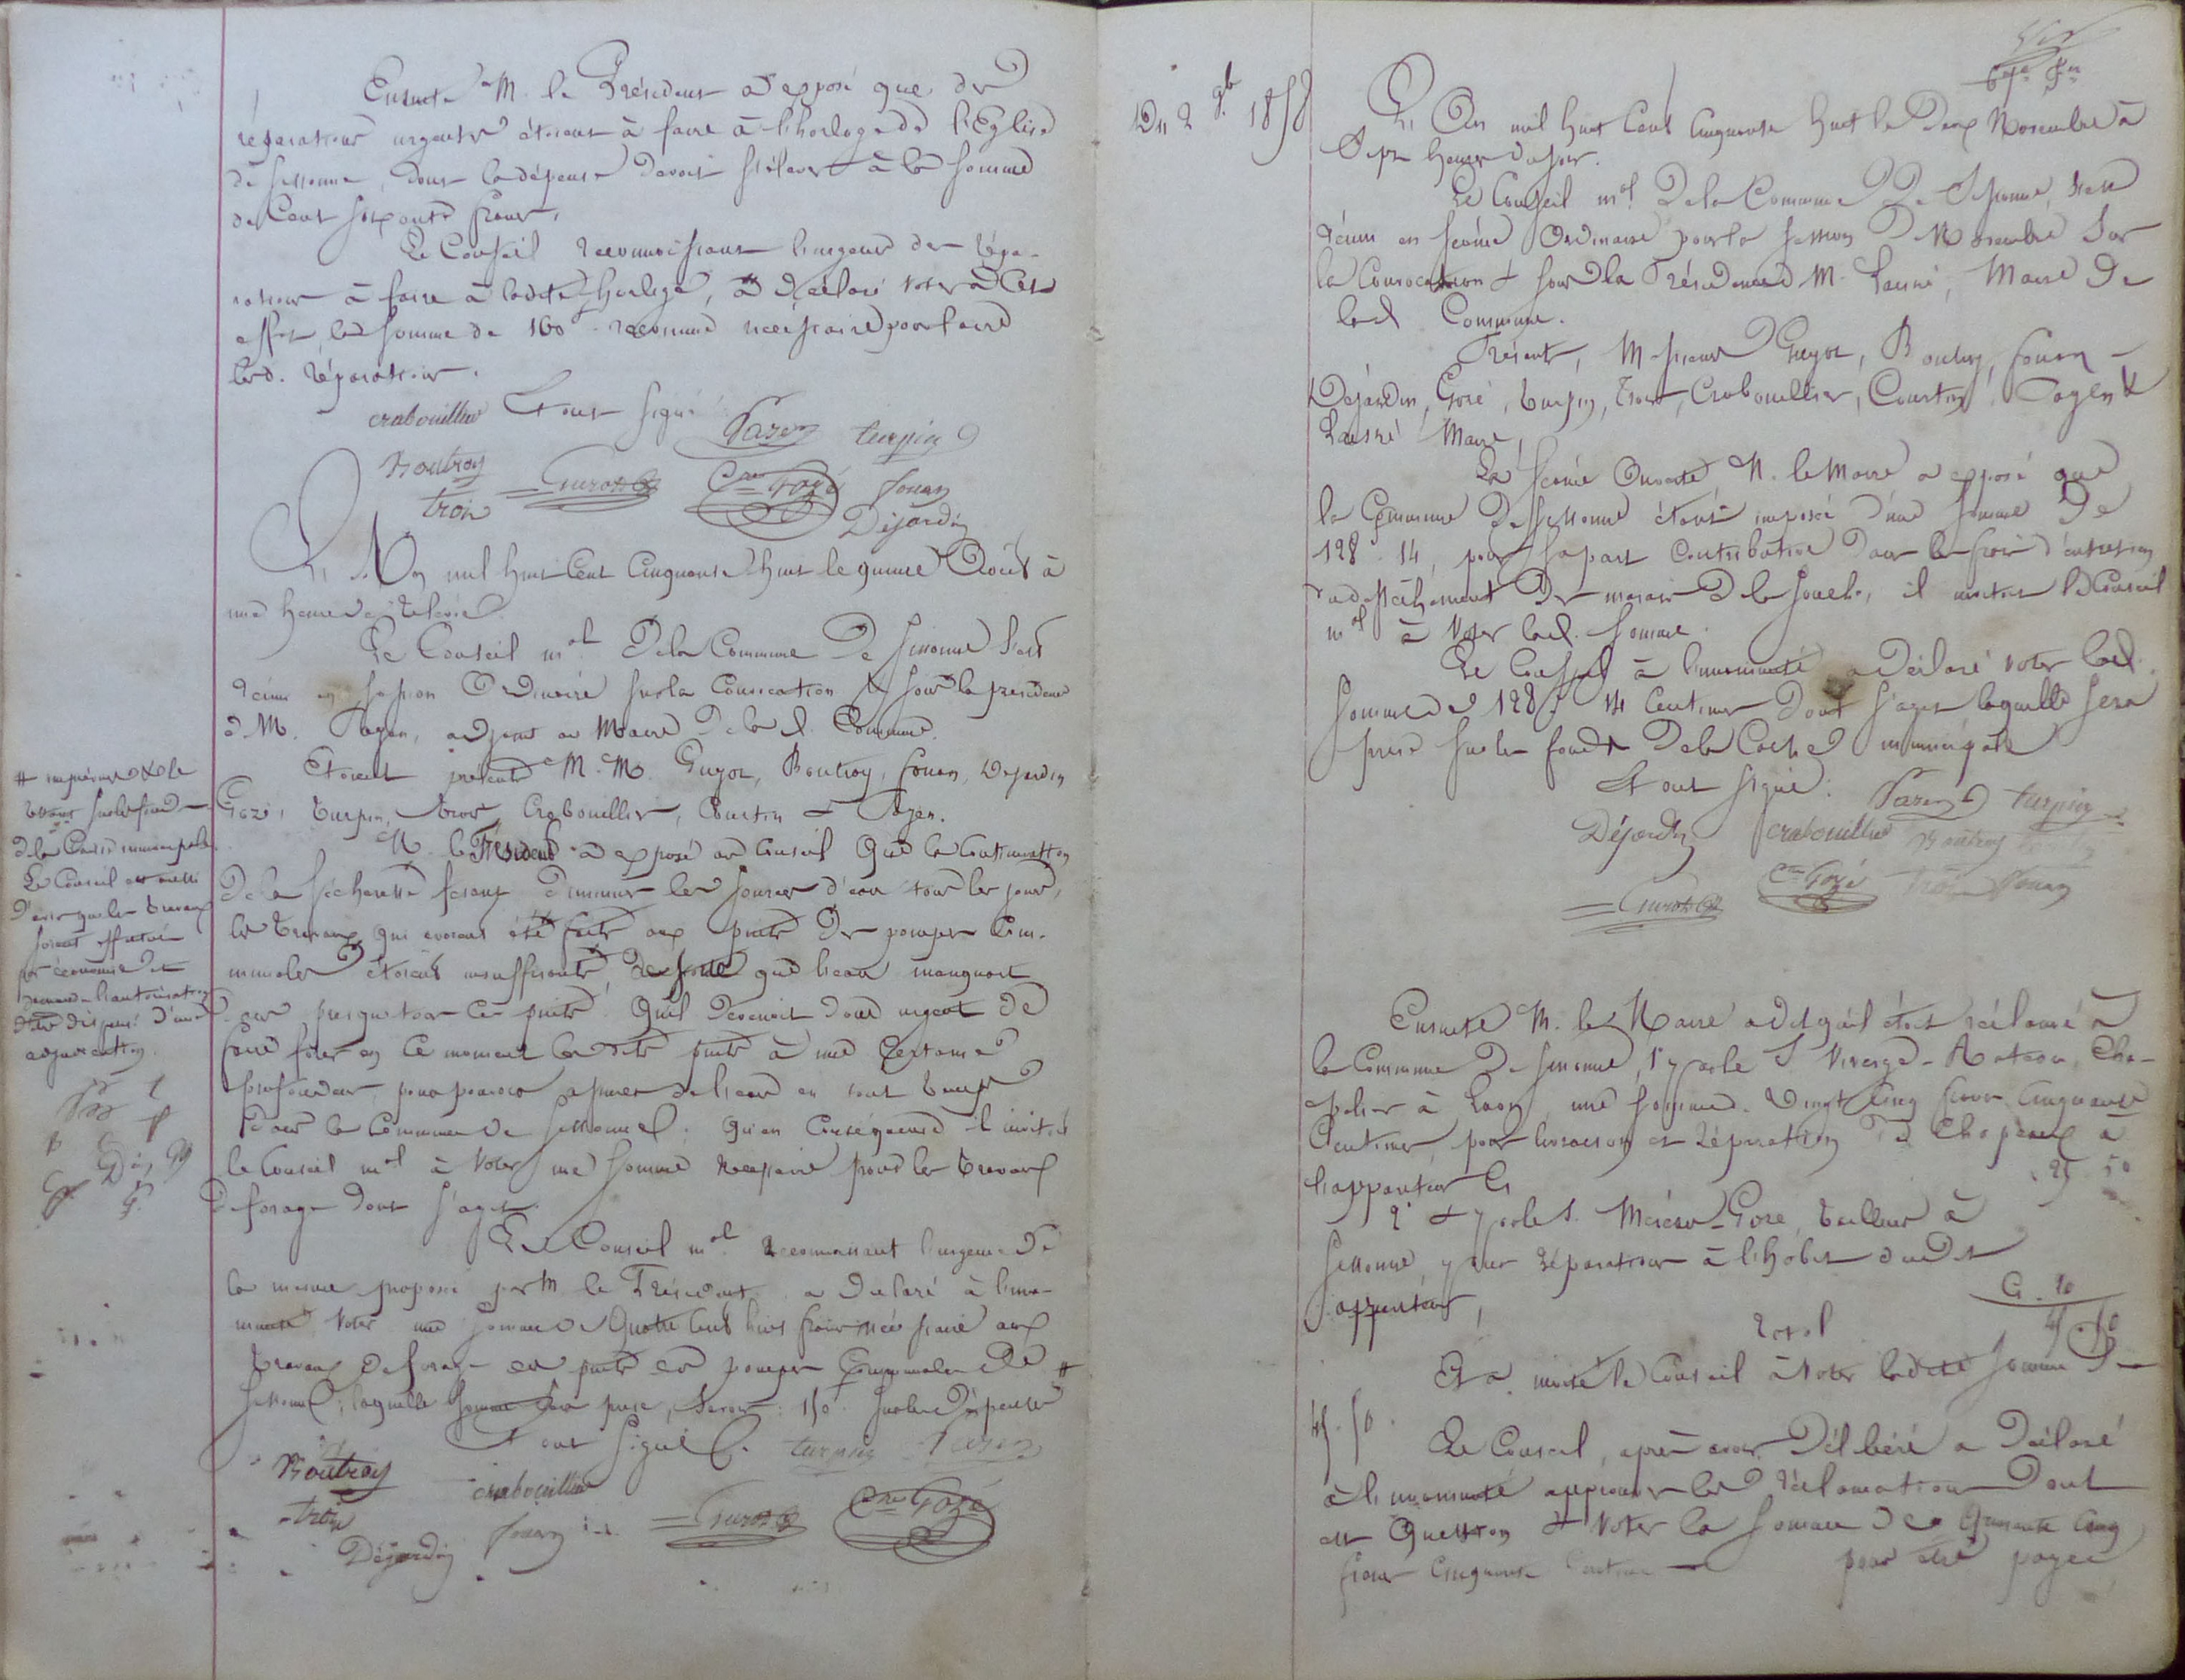 Ensuite M. le Président a exposé que des
réparations urgentes étoient à faire à l'horloge de l'Eglise
de Sissonne, dont la dépense devoit s'élever à la somme
de Cent soixante francs.
Le Conseil reconnoissant l'urgence des répa-
rations à faire à ladite horloge, a déclaré voter à cet
effet la somme de 160f reconnue nécessaire pour faire
lesd. réparations.
Et ont signé
crabouillier Payen turpin
Boutroy Guyot Cre Gozé fouan
troix Déjardin
L'An mil huit Cent Cinquante huit le quinze Août à
une heure de relevée
Le Conseil mal De la Commune De Sissonne s'est
réuni en session Ordinaire sur la Convocation & sous la présidence
d. M. Payen, adjoint au Maire De lad. Commune.
Etoient présents M. M. Guyot, Boutroy, fouan, Dejardin
Gozé, turpin, troix, Crabouillier, Courtin & Payen.
M. le Président a exposé au Conseil Que la Continuation
De la sécheresse faisant diminuer les sources d'eau tous les jours,
les travaux qui avoient été faits aux puits Des pompes Com-
munales étoient insuffisants, de sorte que l'eau manquoit
dans presque tous ces puits. Qu'il devenoit donc urgent de
faire forer en ce moment lesdits puits à une Certaine
profondeur, pour pouvoir assurer de l'eau en tout temps
dans la Commune de Sissonne; Qu'en Conséquence il invitoit
le Conseil mal à Voter une somme Nécessaire pour les travaux
de forage dont s'agit.
Le Conseil mal reconnaissant l'urgence de
la mesure proposée par M. le Président a déclaré à l'una-
nimité Voter une somme de Quatre cents francs nécessaire aux
travaux de forage des puits des pompes Communales de #
Sissonne; laquelle somme sera prise, Savoir: 150f sur les Dépenses
Et ont Signé. turpin Payen
Boutroy crabouillier
troix fouan Guyot Cre Gozé
Déjardin
# imprévues & le
restant sur les fonds
de la Caisse municipale.
Le Conseil est aussi
D'avis que les travaux
soient effectués
par économie et
demande l'autorisation
d'être dispensé d'une
adjudication.
Du 2 9b. 1858
L'An mil huit Cent Cinquante huit le Deux Novembre à
Sept heures du soir.
Le Conseil mal De la Commune De Sissonne, s'est
réuni en séance Ordinaire pour la session De Novembre Sur
la Convocation & sous la Présidence d M. Lainé, Maire De
lad. Commune.
Présents, Messieurs Guyot, Boutroy, fouan
Déjardin, Gozé, turpin, troix, Crabouillier, Courtin, Payen &
Lainé Maire,
La Séance Ouverte M. le Maire a exposé que
la Commune De Sissonne étant imposée d'une somme De
128f.14, pour sa part Contributive Dans les frais d'entretien
du dessèchement Des marais De la Souche, il invitoit le Conseil
mal à Voter lad. somme.
Le Conseil à l'unanimité a Déclaré voter lad.
somme de 128f 14 Centimes dont s'agit laquelle sera
prise sur les fonds De la Caisse municipale
Et ont signé. Payen turpin
Déjardin crabouillier Boutroy
Cre Gozé troix fouan
Guyot
Ensuite M. le Maire a dit qu'il étoit réclamé à
la Commune De Sissonne, 1° par le S. Cha-
pelier à Laon, une somme Vingt Cinq francs Cinquante
Centimes, pour livraison et réparation De Chapeaux à
l'appariteur Ci 25.50
2° & par le S. Gozé, tailleur à
Sissonne, pour réparations à l'habit dudit
appariteur, Ci. 20
Total 45.50
Et a invité le Conseil à Voter ladite somme De
45.50.
Le Conseil, après avoir Délibéré a Déclaré
à l'unanimité approuver les réclamations Dont
est Question & Voter la somme de Quarante Cinq
francs Cinquante Centimes pour être payée